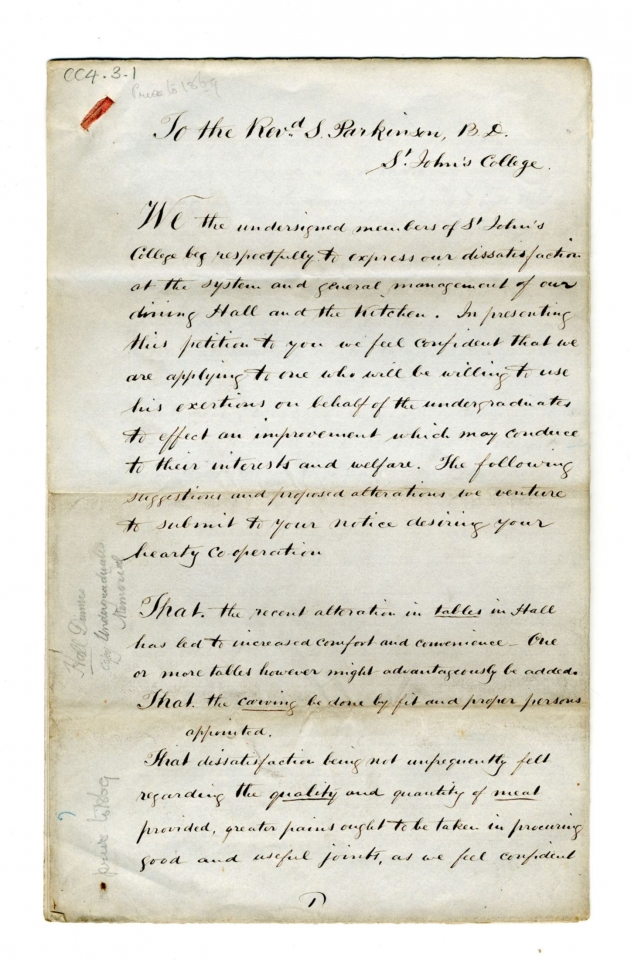 CC4.3.1
Prior to 1869
To the Rev.d S. Parkinson, B.D.
St. John's College.
We the undersigned members of St John's
College beg respectfully to express our dissatisfaction
at the system and general management of our
dining Hall and the Kitchen. In presenting
this petition to you we feel confident that we
are applying to one who will be willing to use
his exertions on behalf of the undergraduates
to effect an improvement which may conduce
to their interests and welfare. The following
suggestions and proposed alterations we venture
to submit to your notice desiring your
hearty Co operation
That. the recent alteration in tables in Hall
has led to increased comfort and convenience – One
or more tables however might advantageously be added.
That. the carving be done by fit and proper persons
appointed.
That dissatisfaction being not unfrequently felt
regarding the quality and quantity of meat
provided, greater pains ought to be taken in procuring
good and useful joints, as we feel confident
1
Hall Dinner
Undergraduates
Memorial
prior to 1869